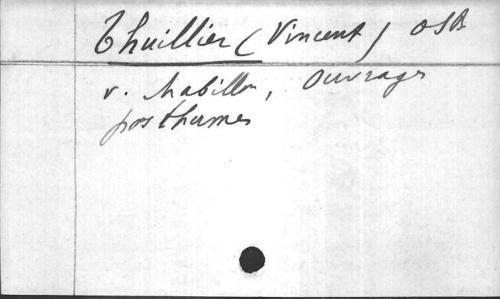 Thuillier (Vincent) OSB
v. Mabillon, Ouvrages
posthumes